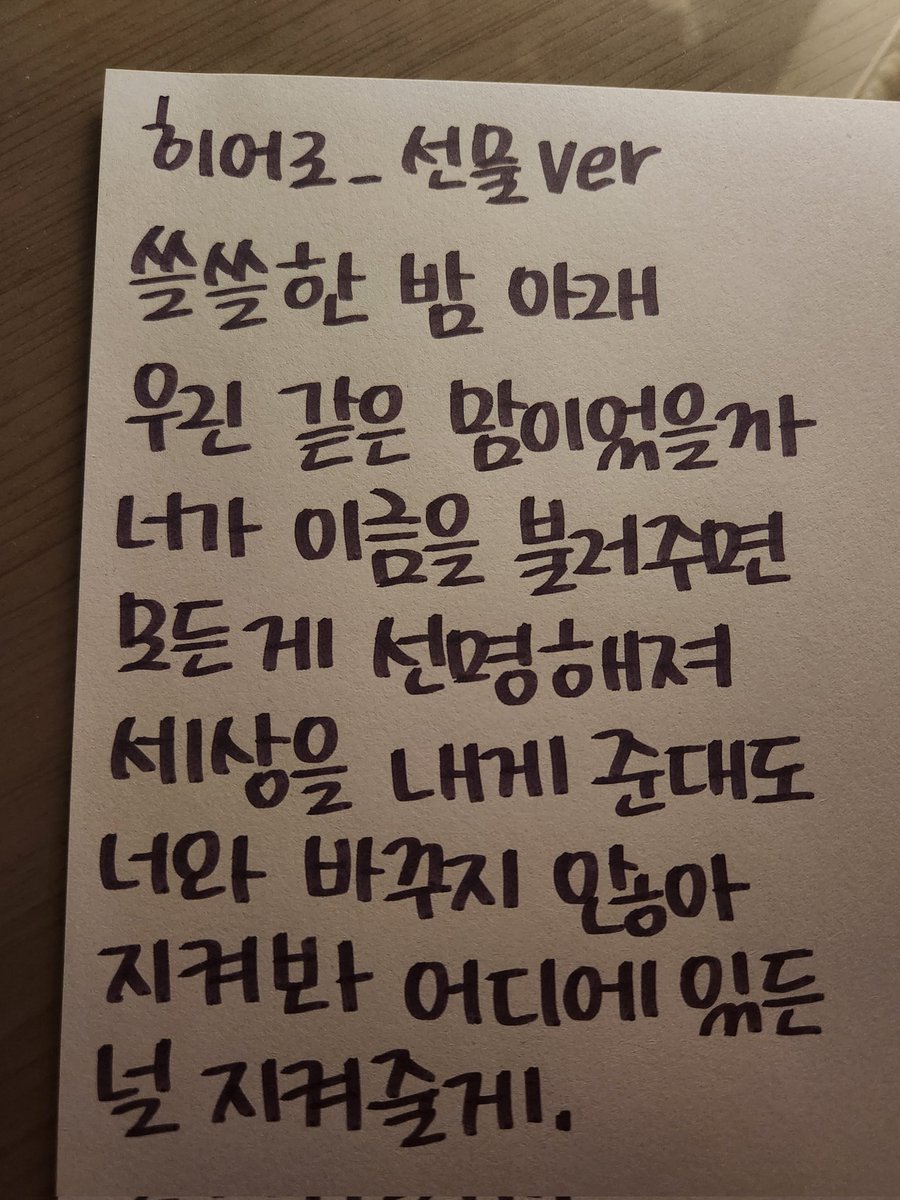 히어로_선물ver
쓸쓸한 밤 아래
우린 같은 맘이었을까
너가 이름을 불러주면
모든게 선명해져
세상을 내게 준대도
너와 바꾸지 않아
지켜봐 어디에 있든
널 지켜줄게.